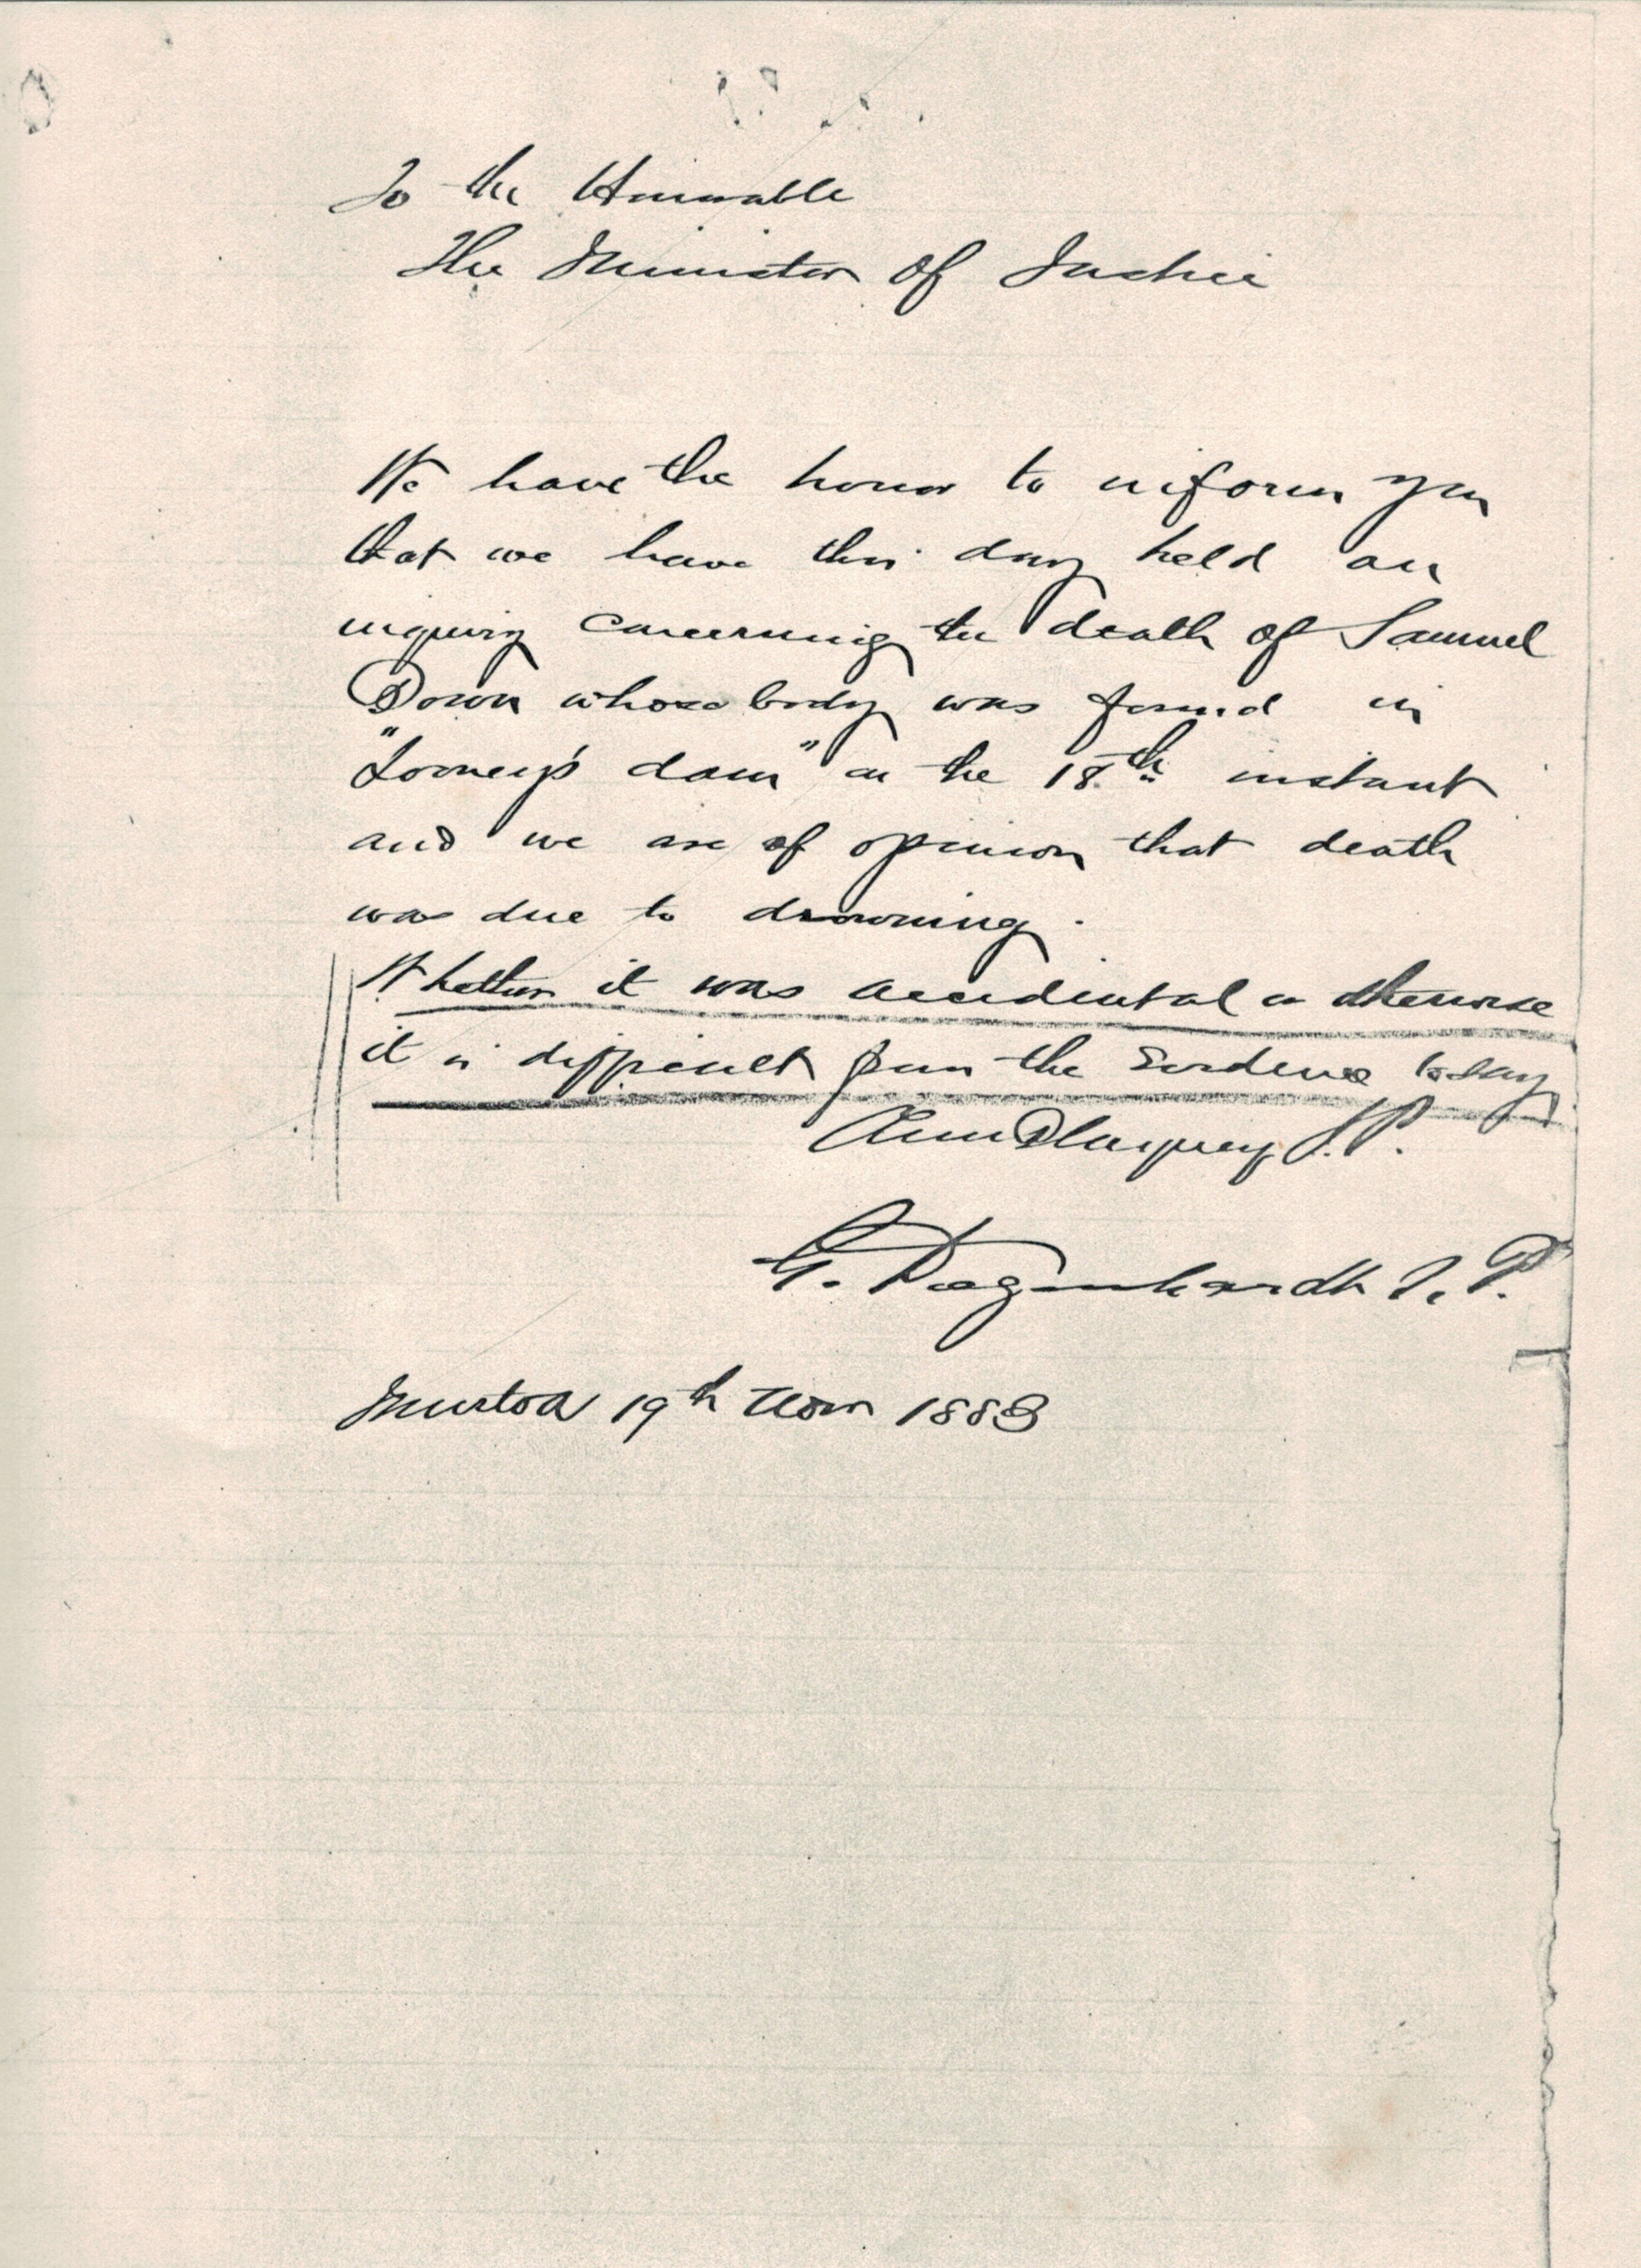 To the Honorable
The Minister of Justice
We have the honor to inform you
that we have this day held an
inquiry concerning the death of Samuel
Down whose body was found in
dam" on the 18th instant
and we are of opinion that death
was due to drowning.
Whether it was accidental or otherwise
it is difficult from the Evidence to say
J.P.
G. Degenhardt J. P.
Murtoa 19th Novr 1888